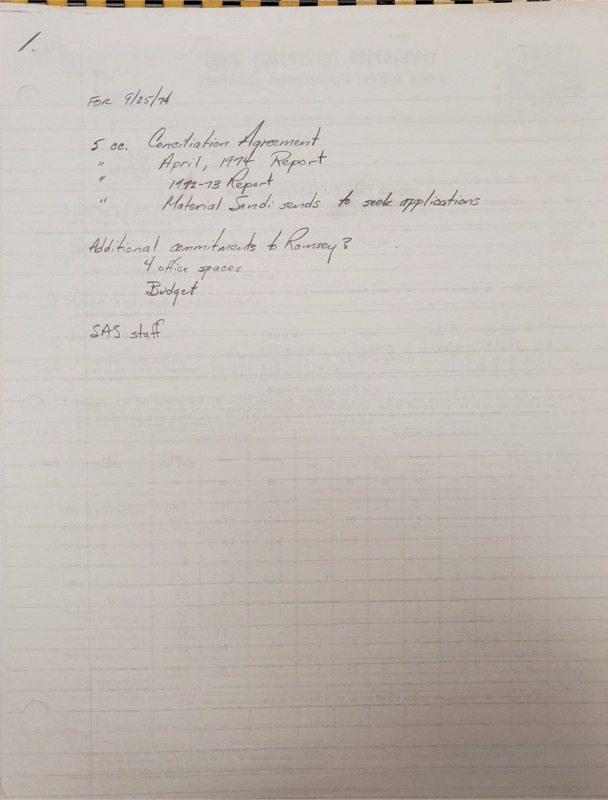 1.
FOR 9/25/74
5 cc. Conciliation Agreement
" April, 1974 Report
" 1972-73 Report
" Material Sandi sends to seek applications
Additional commitments to Ramsey?
4 office spaces
Budget
SAS staff